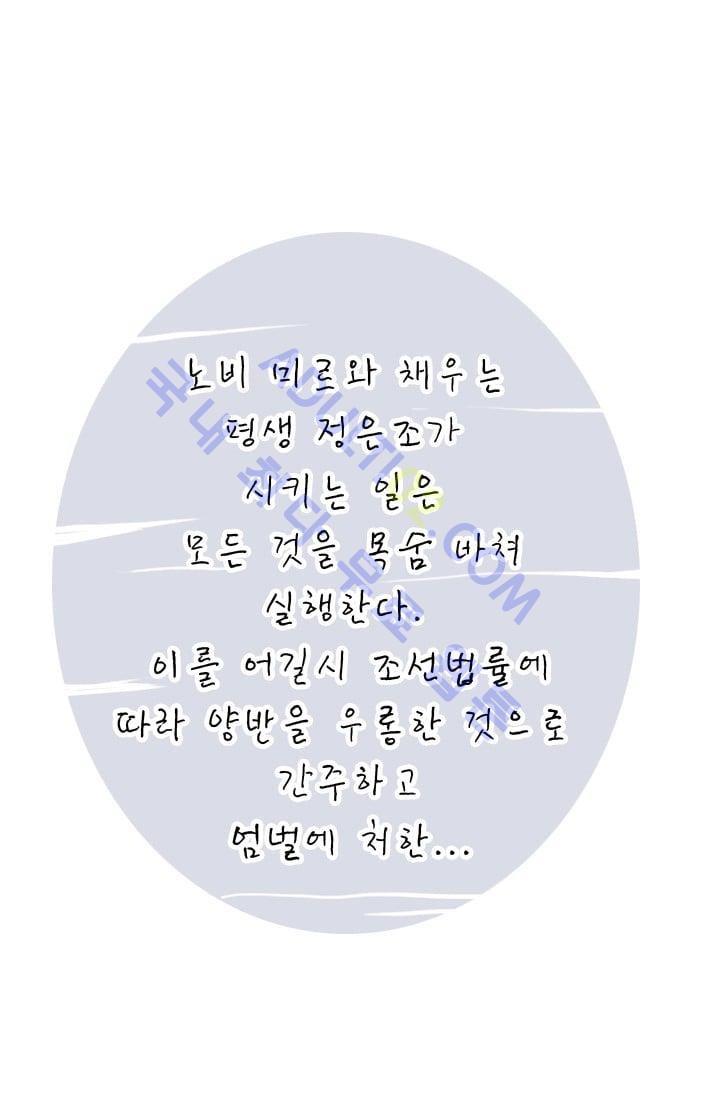 노비 미르와 채우는
평생 정은조가
시키는 일은
모든 것을 목숨 바쳐
실행한다.
이를 어길시 조선법률에
따라 양반을 우롱한 것으로
간주하고
엄벌에 처한...
국내 최다 무료 웹툰